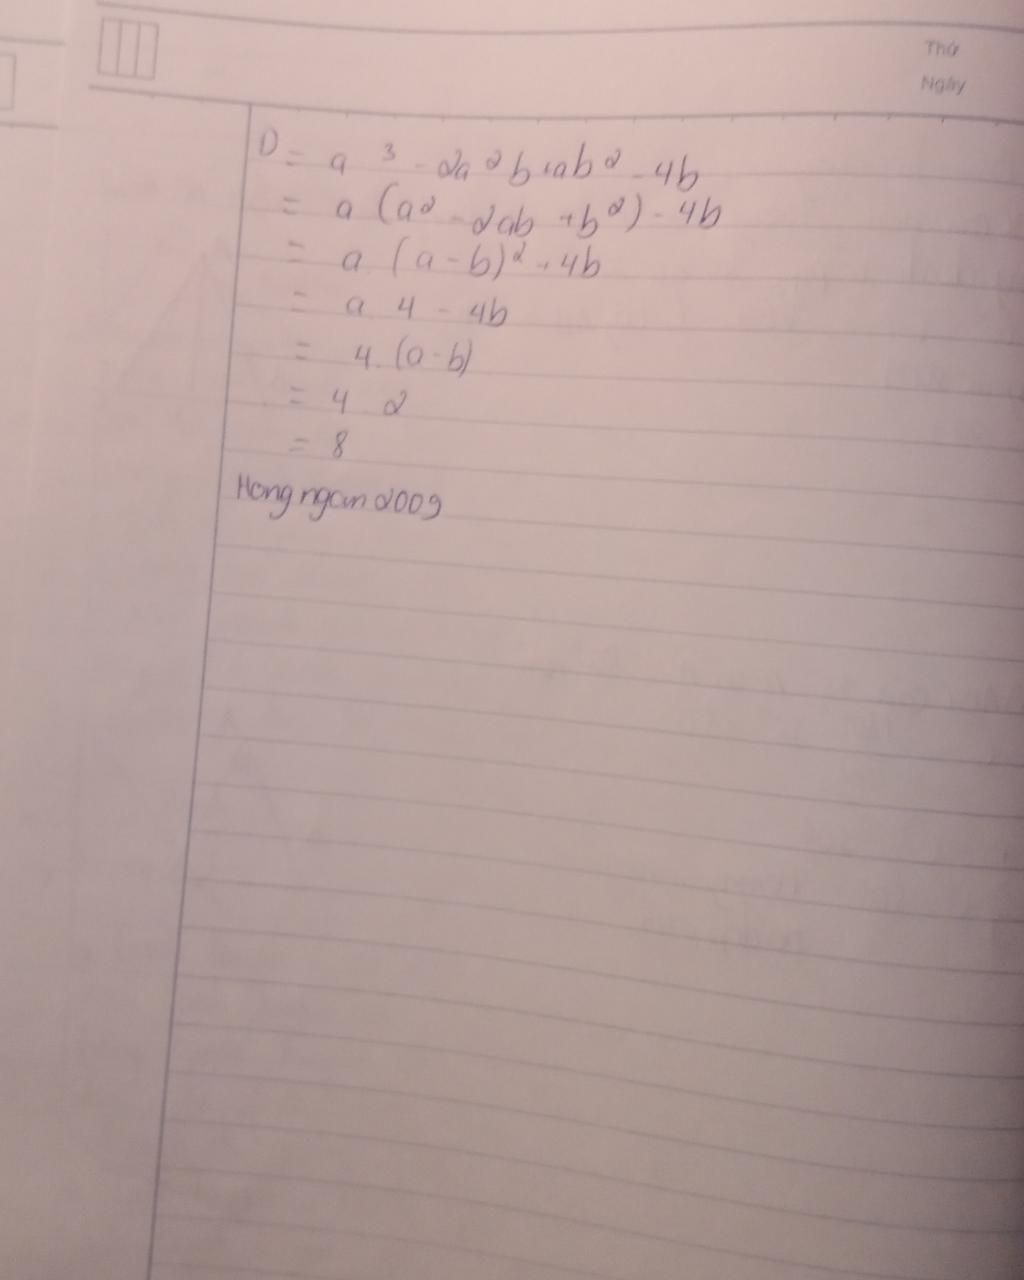 Thứ
Ngày
D = a³ - 2a²b+ab² - 4b
= a (a² - 2ab + b²) - 4b
= a. (a - b)² - 4b
= a 4 - 4b
= 4. (a - b)
= 4 2
= 8
Hongngan2009